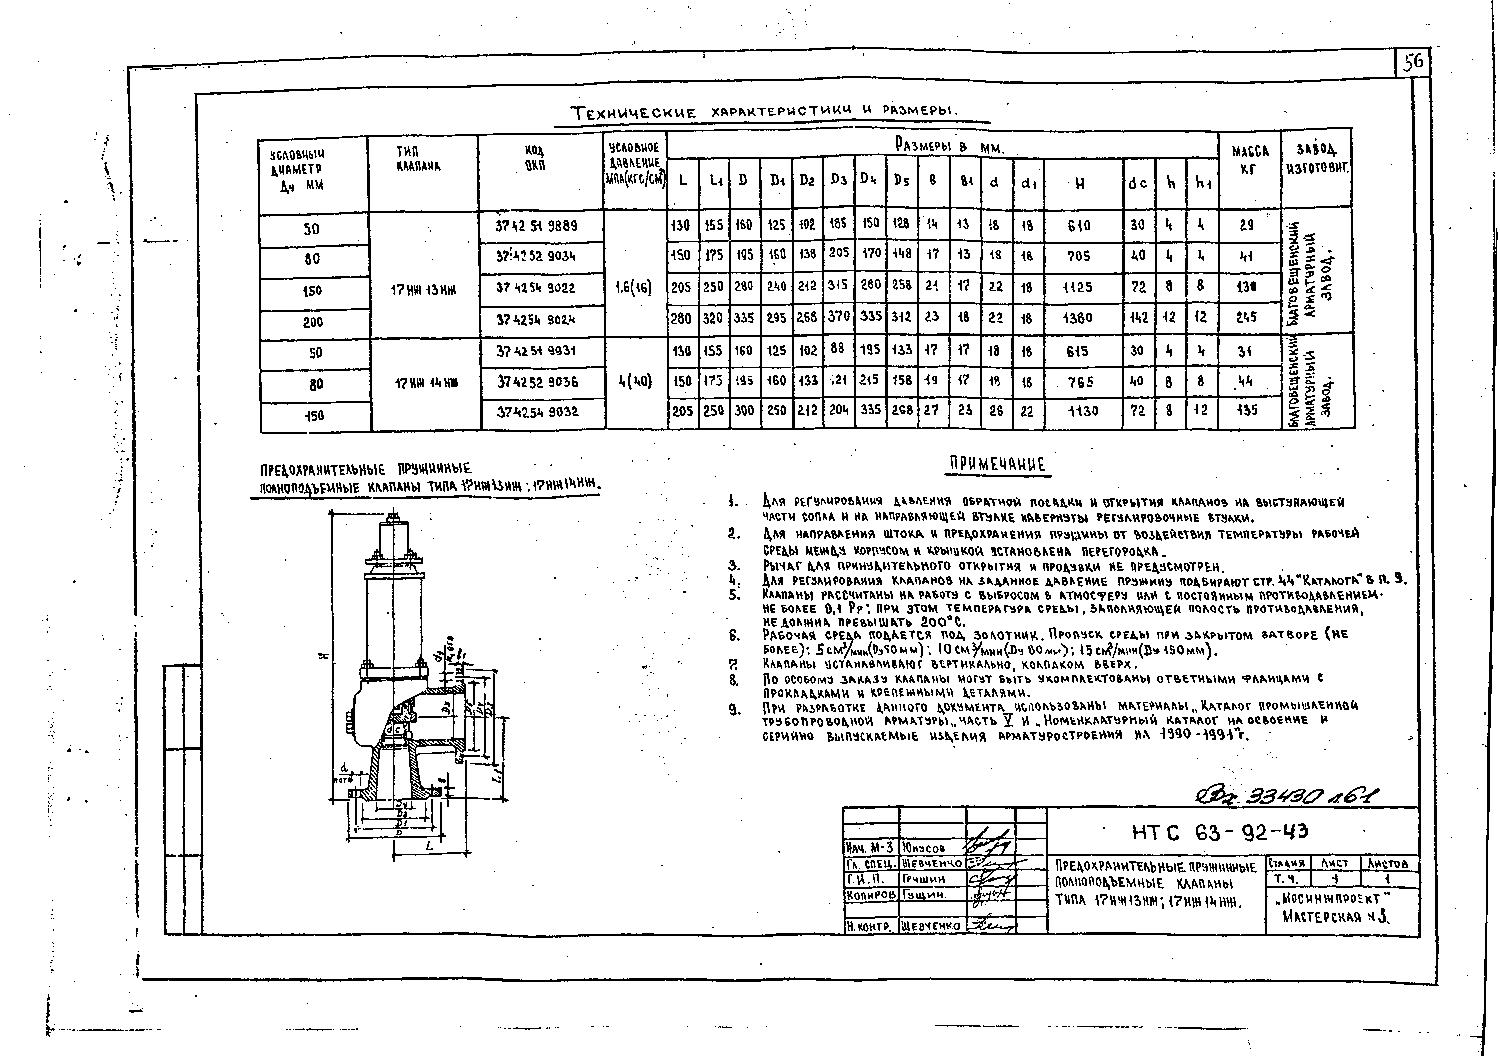 56
Технические характеристики и размеры.
Условный диаметр Ду мм | Тип клапана | Код ОКП | Условное давление МПа(кгс/см²) | Размеры в мм. | Масса кг | Завод изготовит.
L L1 D D1 D2 D3 D4 D5 в в1 d d1 H dc h h1
50 37 42 51 9889 130 155 160 125 102 185 150 128 14 13 18 18 610 30 4 4 29
80 37 42 52 9034 150 175 195 160 138 205 170 148 17 13 18 18 705 40 4 4 41
150 17нж13нж 37 4254 9022 1,6(16) 205 250 280 240 212 315 280 258 21 17 22 18 1125 72 8 8
200 37 4254 9024 280 320 335 295 268 370 335 312 23 18 22 18 1380 142 12 12 245
Благовещенский арматурный завод.
50 37 42 51 9931 130 155 160 125 102 88 195 133 17 17 18 18 615 30 4 4 31
80 17нж14нж 37 42 52 9036 4(40) 150 175 195 160 133 121 215 158 19 17 18 18 765 40 8 8 44
150 37 42.54 9032 205 250 300 250 212 204 335 268 27 23 26 22 1130 72 8 12 135
Благовещенский арматурный завод.
Предохранительные пружинные
полноподъемные клапаны типа 17нж13нж; 17нж14нж.
Примечание
1. Для регулирования давления обратной посадки и открытия клапанов на выступающей
части сопла и на направляющей втулке навернуты регулировочные втулки.
2. Для направления штока и предохранения пружины от воздействия температуры рабочей
среды между корпусом и крышкой установлена перегородка.
3. Рычаг для принудительного открытия и продувки не предусмотрен.
4. Для регулирования клапанов на заданное давление пружину подбирают стр. 44 "Каталога" в п. 9.
5. Клапаны рассчитаны на работу с выбросом в атмосферу или с постоянным противодавлением
не более 0,1 Рр; при этом температура среды, заполняющей полость противодавления,
не должна превышать 200°С.
6. Рабочая среда подается под золотник. Пропуск среды при закрытом затворе (не
более): 5 см³/мин (Ду50мм); 10 см³/мин (Ду 80мм); 15 см³/мин (Ду 150мм).
7. Клапаны устанавливают вертикально, колпаком вверх.
8. По особому заказу клапаны могут быть укомплектованы ответными фланцами с
прокладками и крепежными деталями.
9. При разработке данного документа использованы материалы „Каталог промышленной
трубопроводной арматуры„ часть V и „Номенклатурный каталог на освоение и
серийно выпускаемые изделия арматуростроения на 1990-1991"г.
H
dc
D5
D4
D3
L1
d
D2
D1
D
L
33430 л.61
НТС 63-92-43
Нач. М-3 Юнусов
Гл. спец. Шевченко
Г.И.П. Гришин
Копиров Гущин.
Н.контр. Шевченко
Предохранительные пружинные
полноподъемные клапаны
типа 17нж13нж; 17нж14нж.
Стадия Лист Листов
Т.ч. 1 1
„Мосинжпроект"
Мастерская №3.